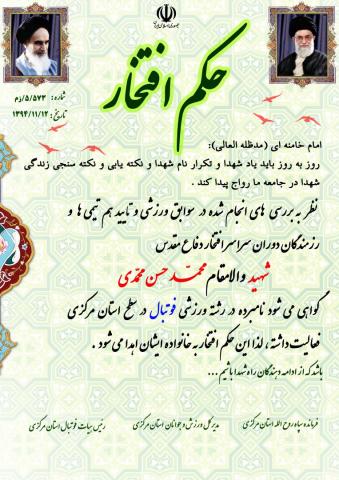 جمهوری اسلامی ایران
حکم افتخار
شماره: ۵/۵۷۳/زم
تاریخ: ۱۳۹۴/۱۱/۱۲
امام خامنه ای (مدظله العالی):
روز به روز باید یاد شهدا و تکرار نام شهدا و نکته یابی و نکته سنجی زندگی
شهدا در جامعه ما رواج پیدا کند .
نظر به بررسی های انجام شده در سوابق ورزشی و تایید هم تیمی ها و
رزمندگان دوران سراسر افتخار دفاع مقدس
شهید والامقام محمد حسن محمدی
گواهی می شود نامبرده در رشته ورزشی فوتبال در سطح استان مرکزی
فعالیت داشته ، لذا این حکم افتخار به خانواده ایشان اهدا می شود .
باشد که از ادامه دهندگان راه شهدا باشیم...
فرمانده سپاه روح الله استان مرکزی
مدیر کل ورزش و جوانان استان مرکزی
رئیس هیات فوتبال استان مرکزی